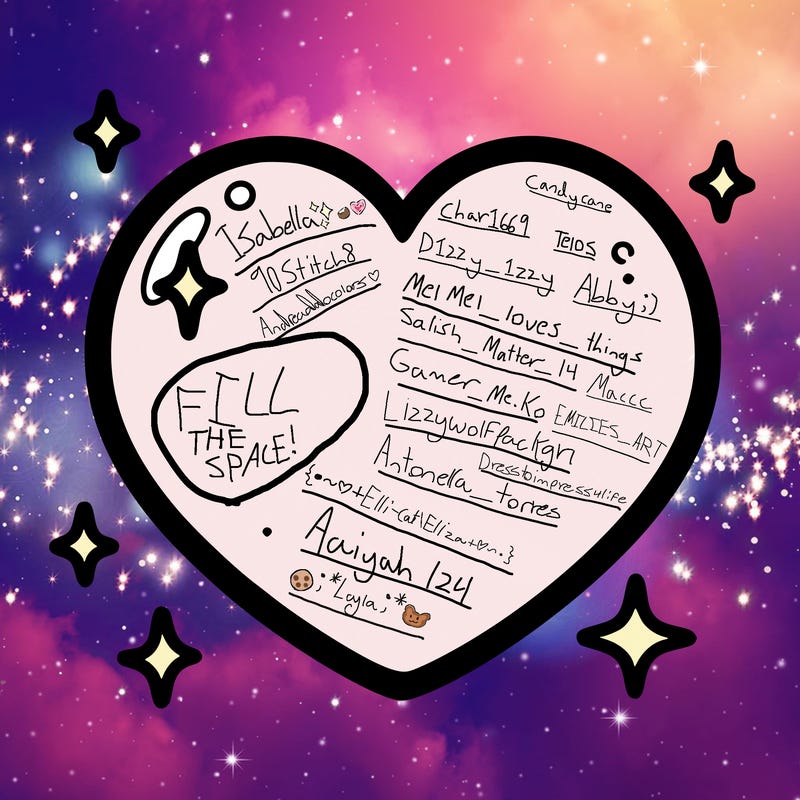 Isabella✨🥥💖
90Stitch8
Andreaddocolors♡
FILL
THE
SPACE!
Candycane
Char1669
Teios
D1zzy_1zzy
Abby;)
Mei Mei_loves_things
Salish_Matter_14
Maccc
Gamer_Me.Ko
EMILIES_ART
Lizzywolfpackgn
Dresstoimpress4life
Antonella_torres
{•~♡+Elli-cat\Eliza+♡~•}
Aaiyah 124
🍪;*Layla;*🐻